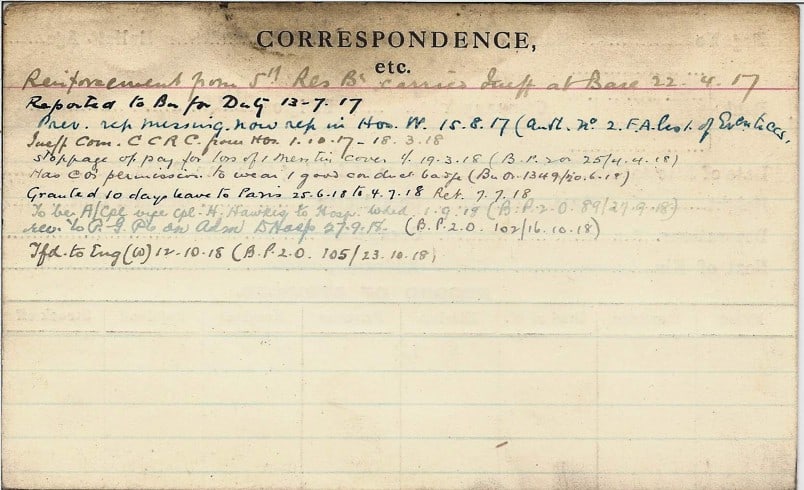 CORRESPONDENCE,
etc.
Reinforcement from 5th Res Bn carried Ineff at Base 22.4.17
Reported to Bn for Duty 13-7.17
Prev. rep missing. now rep in Hos. W. 15.8.17 (Auth. No 2. F.A. List of Eventices,
Ineff Com. C C R C. from Hos 1.10.17 - 18.3.18
stoppage of pay for loss of 1 Mess tin cover 19.3.18 (B.P.2or 25/4.4.18)
Has C Os permission to wear 1 good conduct badge (Bn Or 1349/20.6.18)
Granted 10 days leave to Paris 25.6.18 to 4.7.18 Ret. 7.7.18
To be A/Cpl vice Cpl. H. Hawkig to Hosp. 1.9.18 (B.P.2.O. 89/27.9.18)
rev. to P. on Adm Hosp 27.9.18. (B.P.2.O. 102/16.10.18)
Tfd. to Eng (W) 12.10.18 (B.P.2.O. 105/23.10.18)